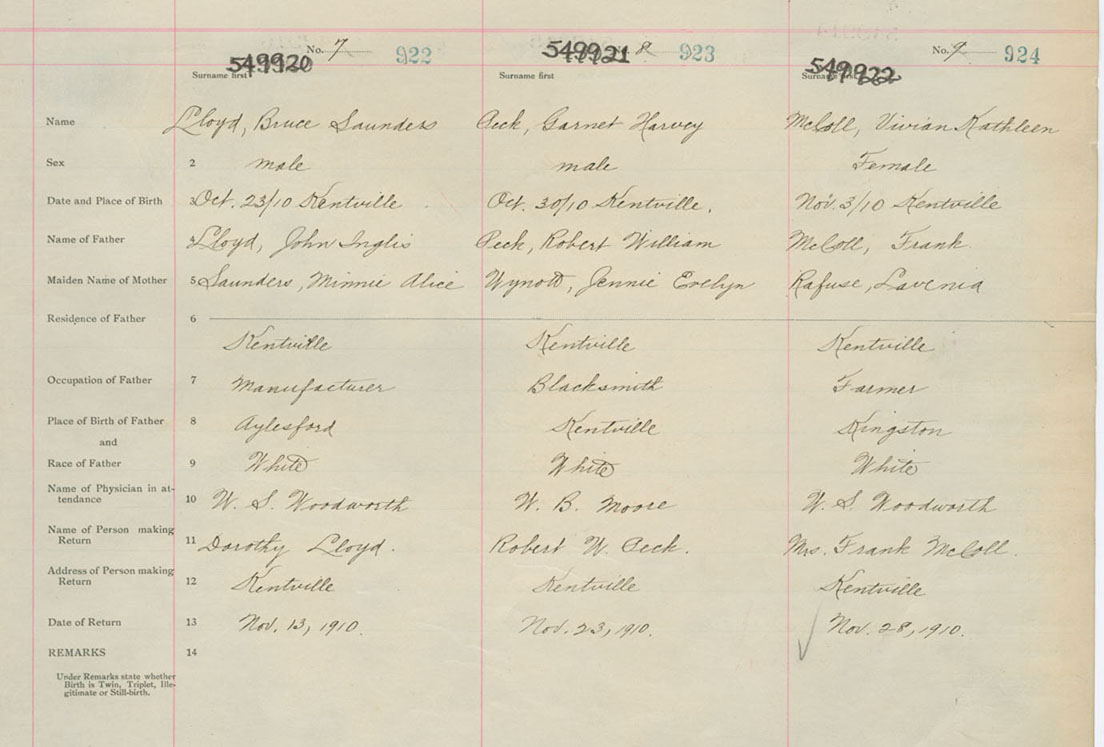 No. 7 922 No. 8 923 No. 9 924
549920 549921 549922
Surname first Surname first Surname first
Name Lloyd, Bruce Saunders Peck, Garnet Harvey McColl, Vivian Kathleen
Sex 2 male male Female
Date and Place of Birth 3 Oct. 23/10 Kentville Oct. 30/10 Kentville. Nov. 3/10 Kentville
Name of Father 4 Lloyd, John Inglis Peck, Robert William McColl, Frank
Maiden Name of Mother 5 Saunders, Minnie Alice Wynott, Jennie Evelyn Rafuse, Lavenia
Residence of Father 6
Kentville Kentville Kentville
Occupation of Father 7 Manufacturer Blacksmith Farmer
Place of Birth of Father 8 Aylesford Kentville Kingston
and
Race of Father 9 White White White
Name of Physician in at-
tendance 10 W. S. Woodworth W. B. Moore W. S. Woodworth
Name of Person making
Return 11 Dorothy Lloyd. Robert W. Peck. Mrs. Frank McColl.
Address of Person making
Return 12 Kentville Kentville Kentville
Date of Return 13 Nov. 13, 1910. Nov. 23, 1910. Nov. 28, 1910.
REMARKS 14
Under Remarks state whether
Birth is Twin, Triplet, Ille-
gitimate or Still-birth.